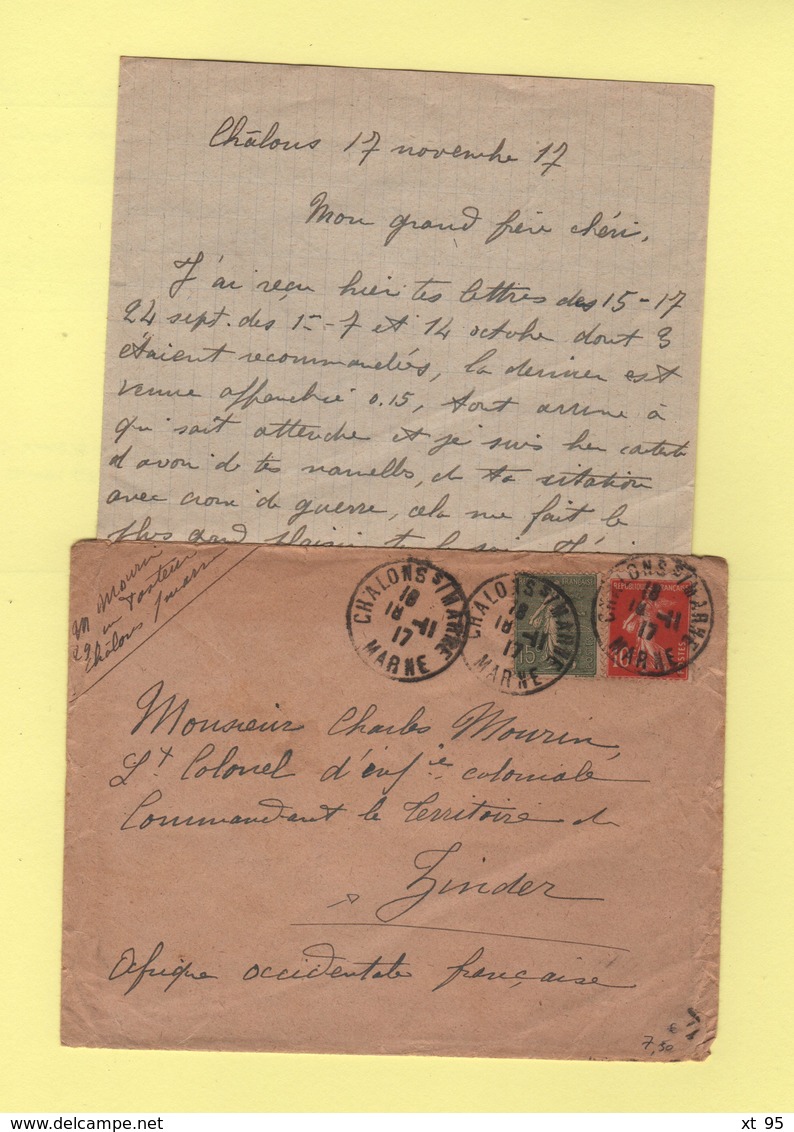 Châlons 17 novembre 17
Mon grand frère chéri,
J'ai reçu hier tes lettres des 15-17
24 sept. des 1-7 et 14 octobre dont 3
étaient recommandées, la dernière est
venue affranchie 0.15, tout arrive à
qui sait attendre et je suis bien content
d'avoir de tes nouvelles, de ta citation
avec croix de guerre, cela me fait le
plus grand plaisir
M Mourin
29 rue Pasteur
Châlons s/marne
CHALONS S/MARNE
18
18 -11
17
MARNE
CHALONS S/MARNE
18
18 -11
17
MARNE
CHALONS S/MARNE
18
18 -11
17
MARNE
15
REPUBLIQUE FRANÇAISE
10
POSTES
Monsieur Charles Mourin,
Lt Colonel d'infie coloniale
Commandant le Territoire de
Zinder
Afrique occidentale française
€
7,50
www.delcampe.net
xt 95